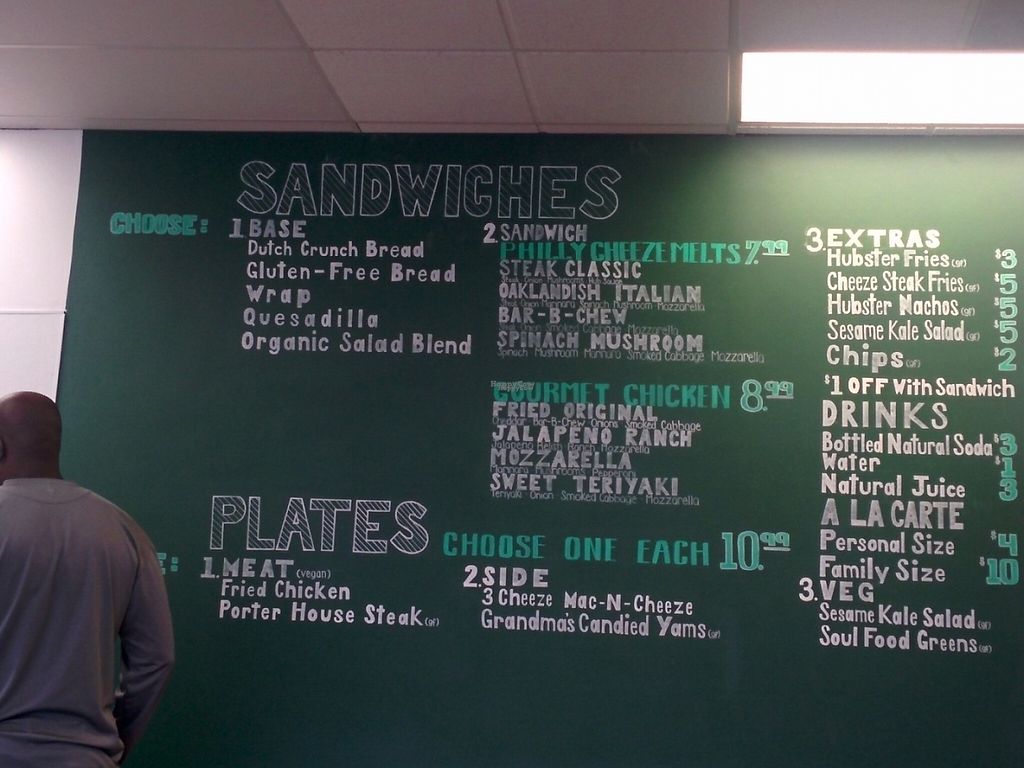 SANDWICHES
CHOOSE:
1. BASE
Dutch Crunch Bread
Gluten-Free Bread
Wrap
Quesadilla
Organic Salad Blend
2. SANDWICH
PHILLY CHEEZE MELTS 7.99
STEAK CLASSIC
Steak Onion Mushrooms Hub Sauce
OAKLANDISH ITALIAN
Steak Onion Marinara Spinach Mushroom Mozzarella
BAR-B-CHEW
Steak Onion Smoked Cabbage Mozzarella
SPINACH MUSHROOM
Spinach Mushroom Marinara Smoked Cabbage Mozzarella
GOURMET CHICKEN 8.99
FRIED ORIGINAL
Cheddar Bar-B-Chew Onions Smoked Cabbage
JALAPENO RANCH
Jalapeno Ranch Mozzarella
MOZZARELLA
Marinara Mushrooms Pepperoni
SWEET TERIYAKI
Teriyaki Onion Smoked Cabbage Mozzarella
3. EXTRAS
Hubster Fries (gf) $3
Cheeze Steak Fries (gf) $5
Hubster Nachos (gf) $5
Sesame Kale Salad (gf) $5
Chips (gf) $2
$1 OFF With Sandwich
DRINKS
Bottled Natural Soda $3
Water $1
Natural Juice 3
A LA CARTE
Personal Size $4
Family Size $10
PLATES
CHOOSE ONE EACH 10.99
E:
1. MEAT (vegan)
Fried Chicken
Porter House Steak (gf)
2. SIDE
3 Cheeze Mac-N-Cheeze
Grandma's Candied Yams (gf)
3. VEG
Sesame Kale Salad (gf)
Soul Food Greens (gf)